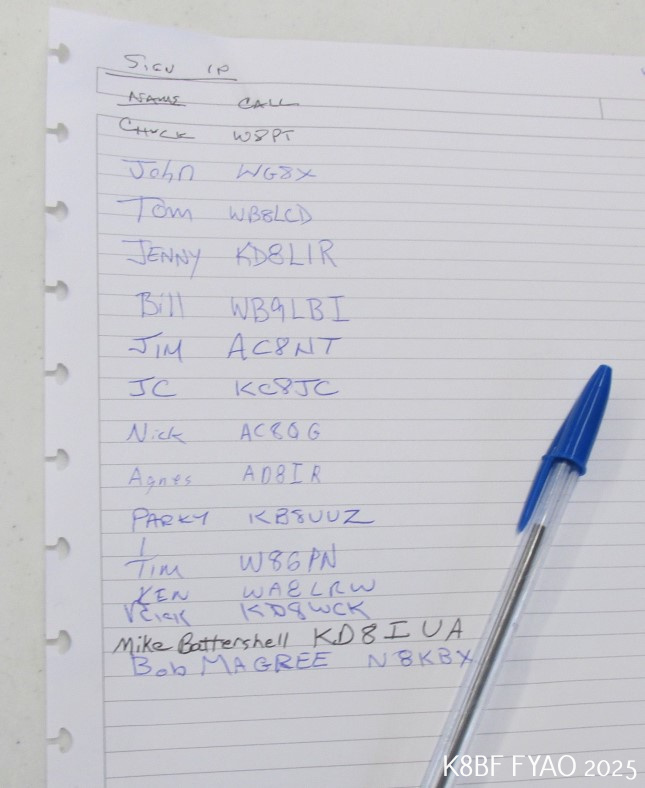 SIGN IP
NAME CALL
CHUCK W8PT
John WG8X
Tom WB8LCD
JENNY KD8LIR
Bill WB9LBI
JIM AC8NT
JC KC8JC
Nick AC8QG
Agnes AD8IR
PARKY KB8UUZ
TIM W8GPN
KEN WA8LRW
Rick KD8WCK
Mike Battershell KD8IUA
Bob MAGREE N8KBX
K8BF FYAO 2025